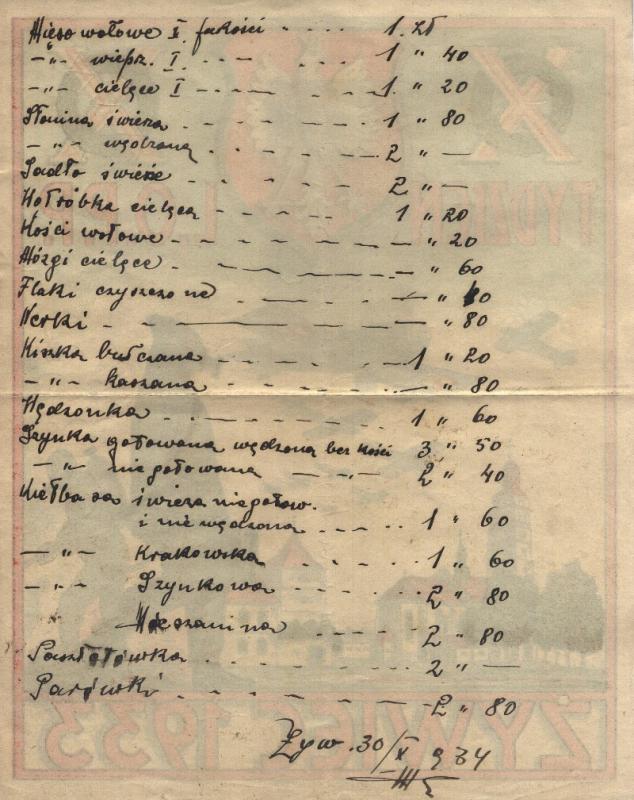 Mięso wołowe II. jakości . . . . 1. zł
-"- wieprz. I. - . . - - - 1 " 40
-"- cielęce I - - . - - - 1. " 20
Słonina świeża . . - - - 1 " 80
-"- wędzona . . - . - - - 2 " —
Sadło świeże - . - - - - 2 " —
Wątróbka cielęca - . - - - 1 " 20
Kości wołowe - - - - - " 20
Mózgi cielęce . - - - - " 60
Flaki czyszczone - - - - "
Nerki - . - - - " 80
Kiszka bułczana - - - . - - - 1 " 20
-"- kaszana . . - - - . - " 80
Wędzonka . - - - - - - 1 " 60
Szynka gotowana wędzona bez kości 3 " 50
-"- niegotowana - "- 2 " 40
Kiełbasa świeża niegotow.
i nie wędzona . - - . . 1 " 60
-"- Krakowska . . - . . 1 " 60
-"- Szynkowa - . - - . 2 " 80
Mieszanina - - - - 2 " 80
. . - - - . - - 2 " —
Parówki - . - - - - - 2 " 80
Żyw. 30/X 934
ŻYWIEC 1933